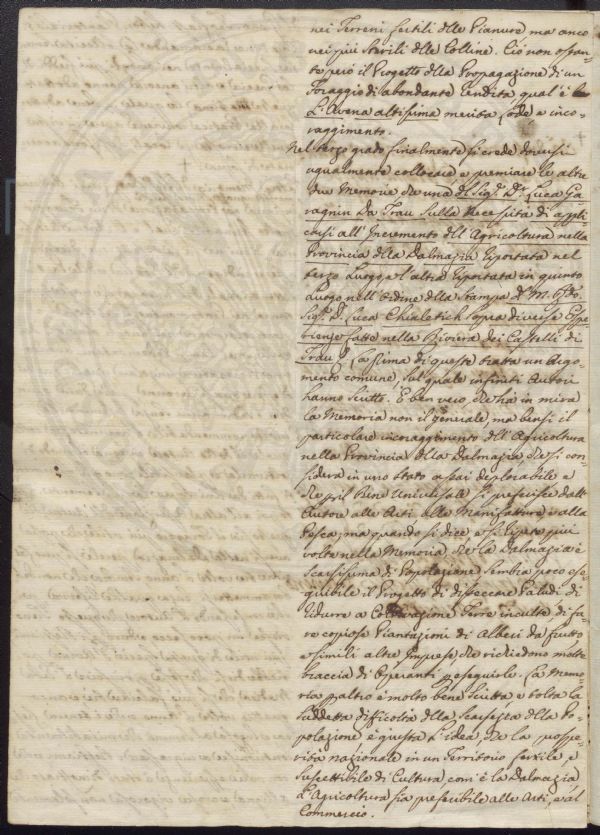 nei Terreni fertili dlle Pianure ma anco
nei piú Sterili dlle Colline. Ció non ostan-
te peró il Progetto dlla Propagazione di un
Foraggio di abondante Rendita qual' è
L'Avena altissima merita Lode e inco-
raggimento.
Nel terzo grado finalmente si crede doversi
ugualmente collocare e premiare le altre
due Memorie che una dl Sigr. Dr. Luca Ga-
ragnin Da Trau Sulla Necessità di appli-
carsi all' Incremento dll' Agricoltura nella
Provincia dlla Dalmazia riportata nel
terzo Luogo, e l'altra riportata in quinto
Luogo nell' Ordine dlla Stampa dl M.
Sigr. D. Luca Chialetich sopra diverse Espe-
rienze fatte nella Riviera dei Castelli di
Trau. La prima di queste tratta un Argo-
mento comune, sul quale infiniti Autori
hanno scritto. È ben vero che ha in mira
la Memoria non il generale, ma bensi il
particolare incoraggimento dll' Agricoltura
nella Provincia dlla Dalmazia, che si con-
sidera in uno stato assai deplorabile e
che pril Bene Universale si preferisce dall'
Autore alle Arti, alle Manifatture, e alla
Pesca; ma quando si dice, e si ripete piú
volte nella Memoria, che la Dalmazia è
scarsissima di Popolazione sembra poco ese-
quibile il Progetto di disseccare Paludi, di
ridurre a Coltivazione Terre inculte, di fa-
re copiose Piantagioni di Alberi da frutto
e simili altre Imprese, che richiedono molte
braccia di Operanti p eseguirle. La Memo-
ria p altro è molto bene scritta, e tolta la
suddetta difficoltà dlla scarsezza dlla Po-
polazione è giusta l'idea, che la prospe-
rità nazionale in un Territorio fertile, e
suscettibile di Cultura com' è la Dalmazia
L'Agricoltura sia preferibile alle Arti, e al
Commercio.